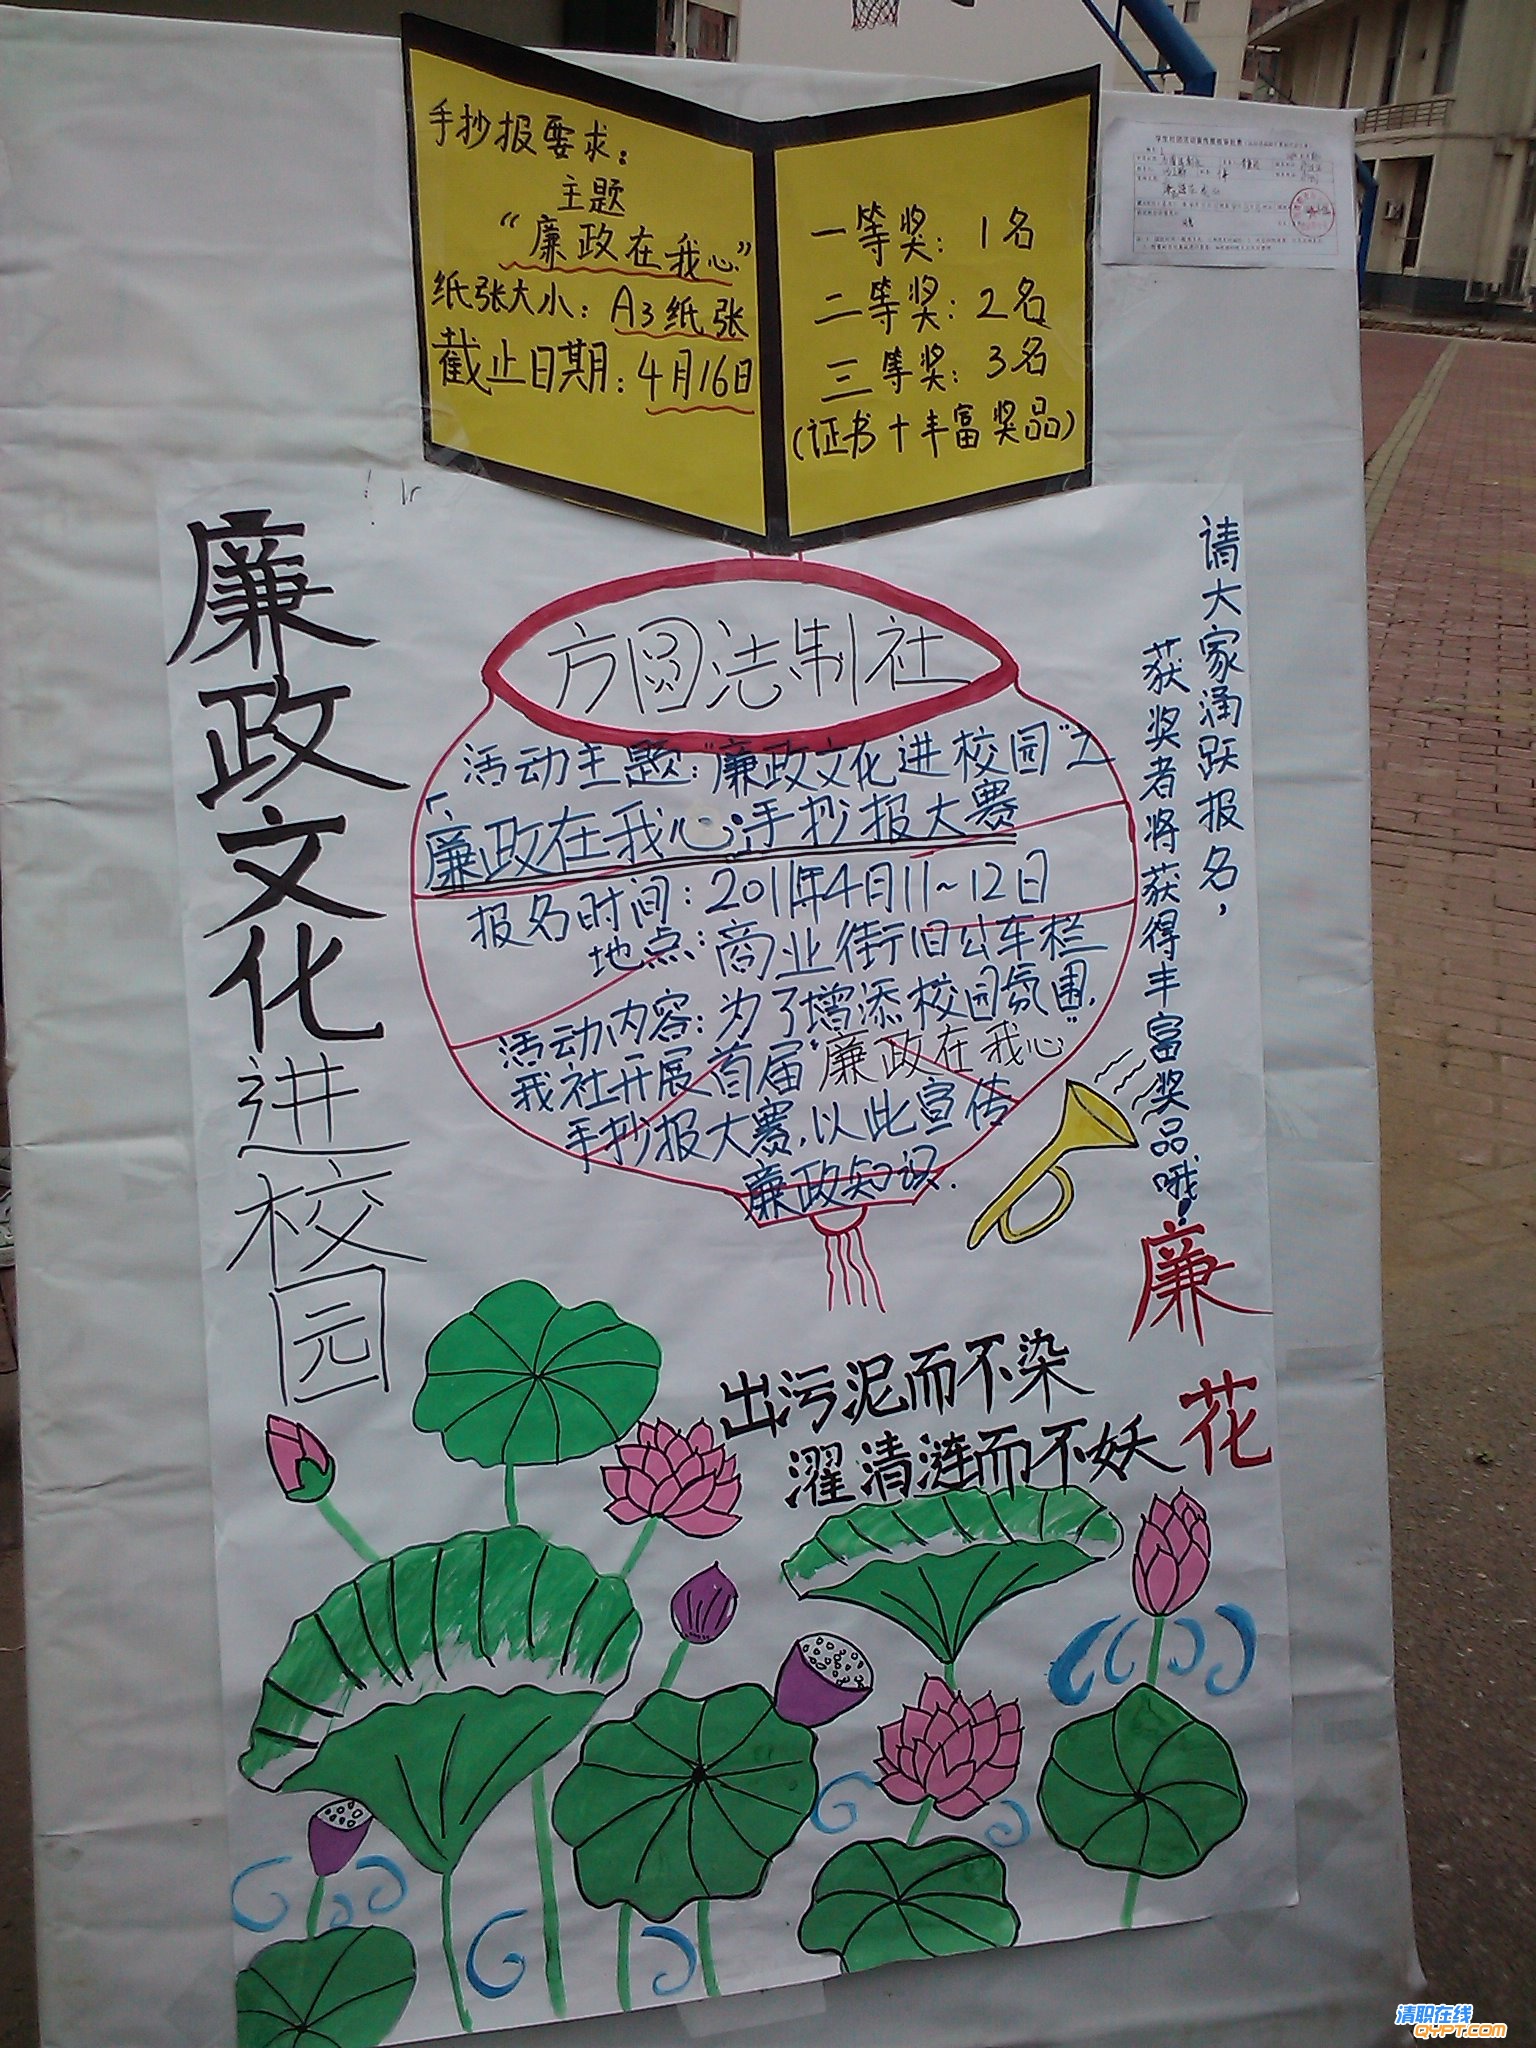 手抄报要求：
主题
“廉政在我心”
纸张大小：A3纸张
截止日期：4月16日
一等奖：1名
二等奖：2名
三等奖：3名
（证书+丰富奖品）
廉政文化进校园
方圆法制社
活动主题：“廉政文化进校园”之
“廉政在我心”手抄报大赛
报名时间：2011年4月11~12日
地点：商业街旧公车栏
活动内容：为了增添校园氛围，
我社开展首届“廉政在我心”
手抄报大赛，以此宣传
廉政知识．
请大家涌跃报名，
获奖者将获得丰富奖品哦！
廉花
出污泥而不染
濯清涟而不妖
清职在线
QYPT.COM